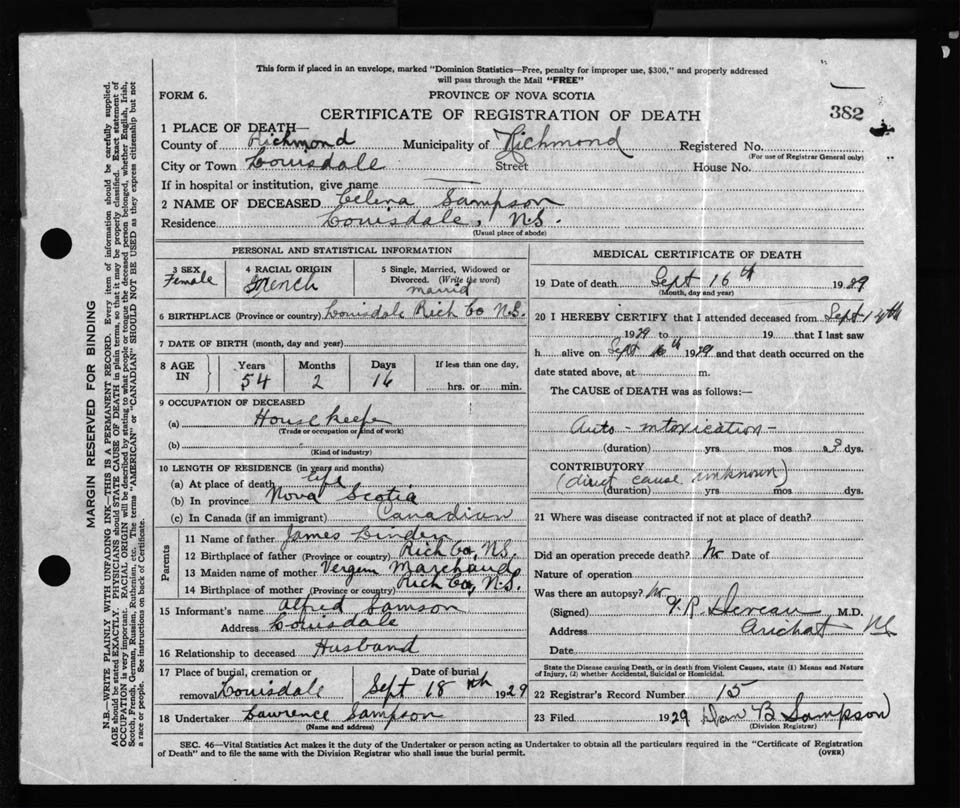 This form if placed in an envelope, marked "Dominion Statistics—Free, penalty for improper use, $300," and properly addressed
will pass through the Mail "FREE"
FORM 6.
PROVINCE OF NOVA SCOTIA
CERTIFICATE OF REGISTRATION OF DEATH
382
1 PLACE OF DEATH—
County of Richmond Municipality of Richmond Registered No.
(For use of Registrar General only)
City or Town Louisdale Street House No.
If in hospital or institution, give name
2 NAME OF DECEASED Celena Sampson
Residence Louisdale, N.S.
(Usual place of abode)
PERSONAL AND STATISTICAL INFORMATION
3 SEX 4 RACIAL ORIGIN 5 Single, Married, Widowed or
Divorced. (Write the word)
Female French Married
6 BIRTHPLACE (Province or country) Louisdale Rich Co N.S.
7 DATE OF BIRTH (month, day and year)
8 AGE IN Years Months Days If less than one day,
54 2 16 hrs. or min.
9 OCCUPATION OF DECEASED
(a) House keeper
(Trade or occupation or kind of work)
(b)
(Kind of industry)
10 LENGTH OF RESIDENCE (in years and months)
(a) At place of death life
(b) In province Nova Scotia
(c) In Canada (if an immigrant) Canadian
Parents
11 Name of father James
12 Birthplace of father (Province or country) Rich Co, N.S.
13 Maiden name of mother Marchand
14 Birthplace of mother (Province or country) Rich Co, N.S.
15 Informant's name Alfred Samson
Address Louisdale
16 Relationship to deceased Husband
17 Place of burial, cremation or Date of burial
removal Louisdale Sept 18 th 1929
18 Undertaker Lawrence Sampson
(Name and address)
MEDICAL CERTIFICATE OF DEATH
19 Date of death Sept 16th 1929
(Month, day and year)
20 I HEREBY CERTIFY that I attended deceased from Sept 14th
1929 to 19 that I last saw
h alive on Sept 16th 1929 and that death occurred on the
date stated above, at m.
The CAUSE of DEATH was as follows:—
Auto-intoxication-
(duration) yrs mos dys.
CONTRIBUTORY
(direct cause unknown)
(duration) yrs mos dys.
21 Where was disease contracted if not at place of death?
Did an operation precede death? No Date of
Nature of operation
Was there an autopsy? No
(Signed) Deveau M.D.
Address Arichat NS
Date
State the Disease causing Death, or in death from Violent Causes, state (1) Means and Nature
of Injury, (2) whether Accidental, Suicidal or Homicidal.
22 Registrar's Record Number 15
23 Filed 1929 Dan B Sampson
(Division Registrar)
SEC. 46—Vital Statistics Act makes it the duty of the Undertaker or person acting as Undertaker to obtain all the particulars required in the "Certificate of Registration
of Death" and to file the same with the Division Registrar who shall issue the burial permit.
(OVER)
MARGIN RESERVED FOR BINDING
N.B.—WRITE PLAINLY WITH UNFADING INK—THIS IS A PERMANENT RECORD. Every item of information should be carefully supplied.
AGE should be stated EXACTLY. PHYSICIANS should STATE CAUSE OF DEATH in plain terms, so that it may be properly classified. Exact statement of
OCCUPATION is very important. RACIAL ORIGIN will be described by stating to what people or tongue the deceased person belonged, whether English, Irish,
Scotch, French, German, Russian, Ruthenian, etc. The terms "AMERICAN" or "CANADIAN" SHOULD NOT BE USED as they express citizenship but not
a race or people. See instructions on back of Certificate.